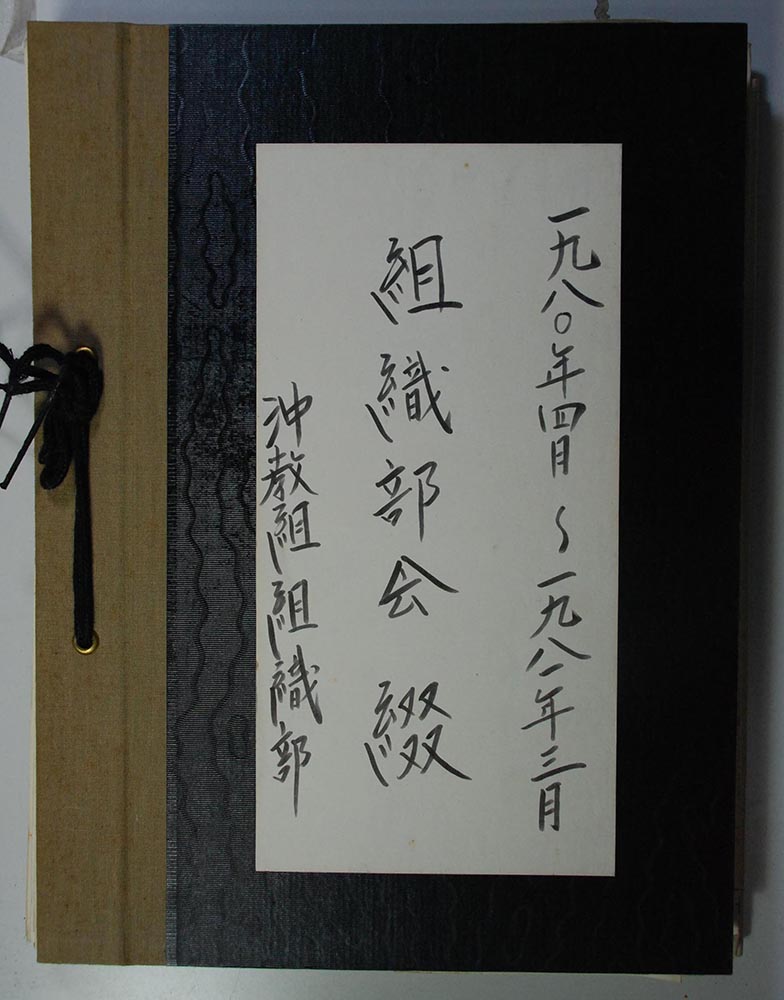 一九八〇年四月〜一九八一年三月
組織部会綴
沖教組組織部